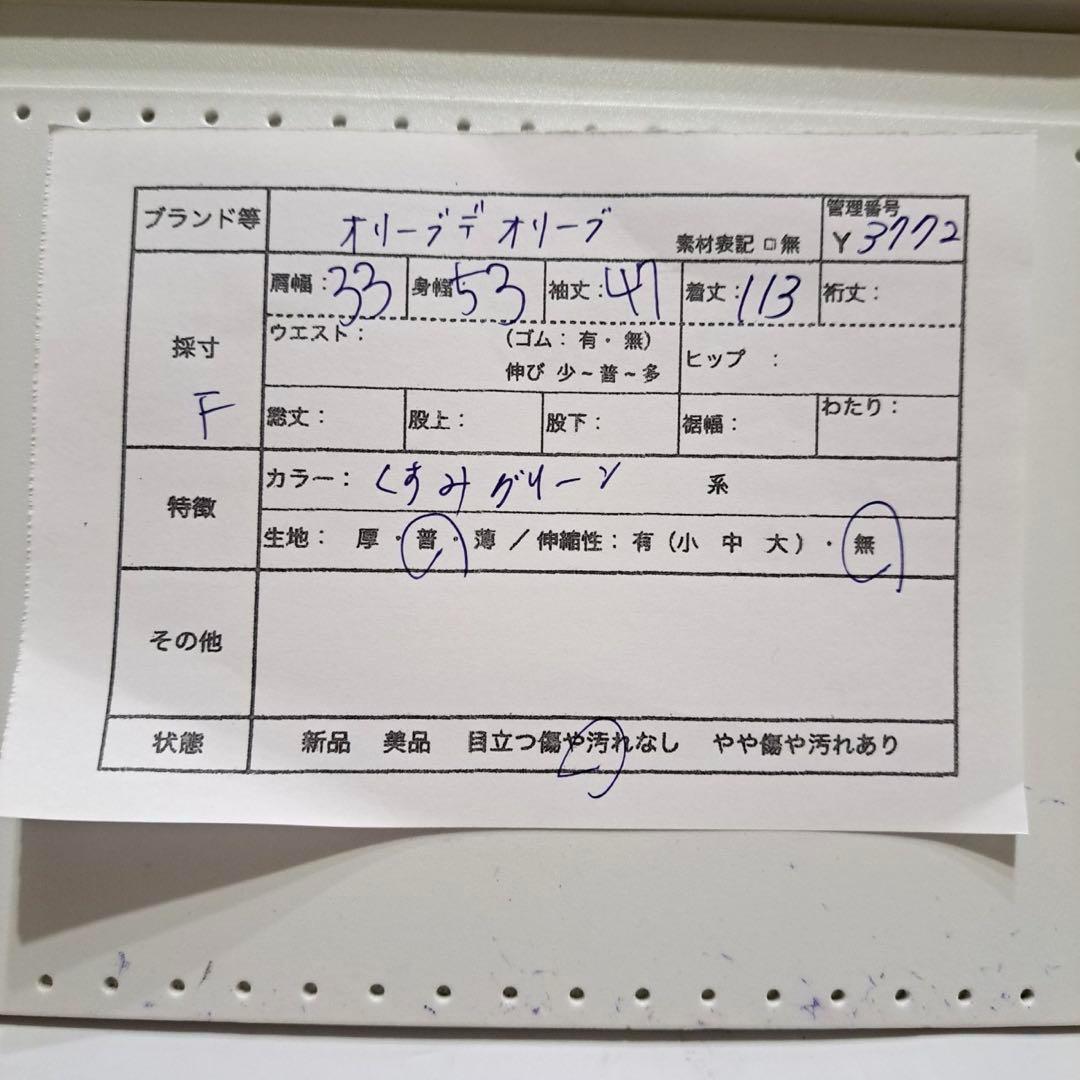 ブランド等 オリーブデオリーブ 素材表記 □ 無 管理番号 Y 3772
採寸 F
肩幅：33 身幅：53 袖丈：47 着丈：113 裄丈：
ウエスト： （ゴム：有・無） 伸び 少～普～多 ヒップ ：
総丈： 股上： 股下： 裾幅： わたり：
特徴
カラー： くすみグリーン 系
生地： 厚・普・薄 ／ 伸縮性：有（小 中 大）・無
その他
状態 新品 美品 目立つ傷や汚れなし やや傷や汚れあり